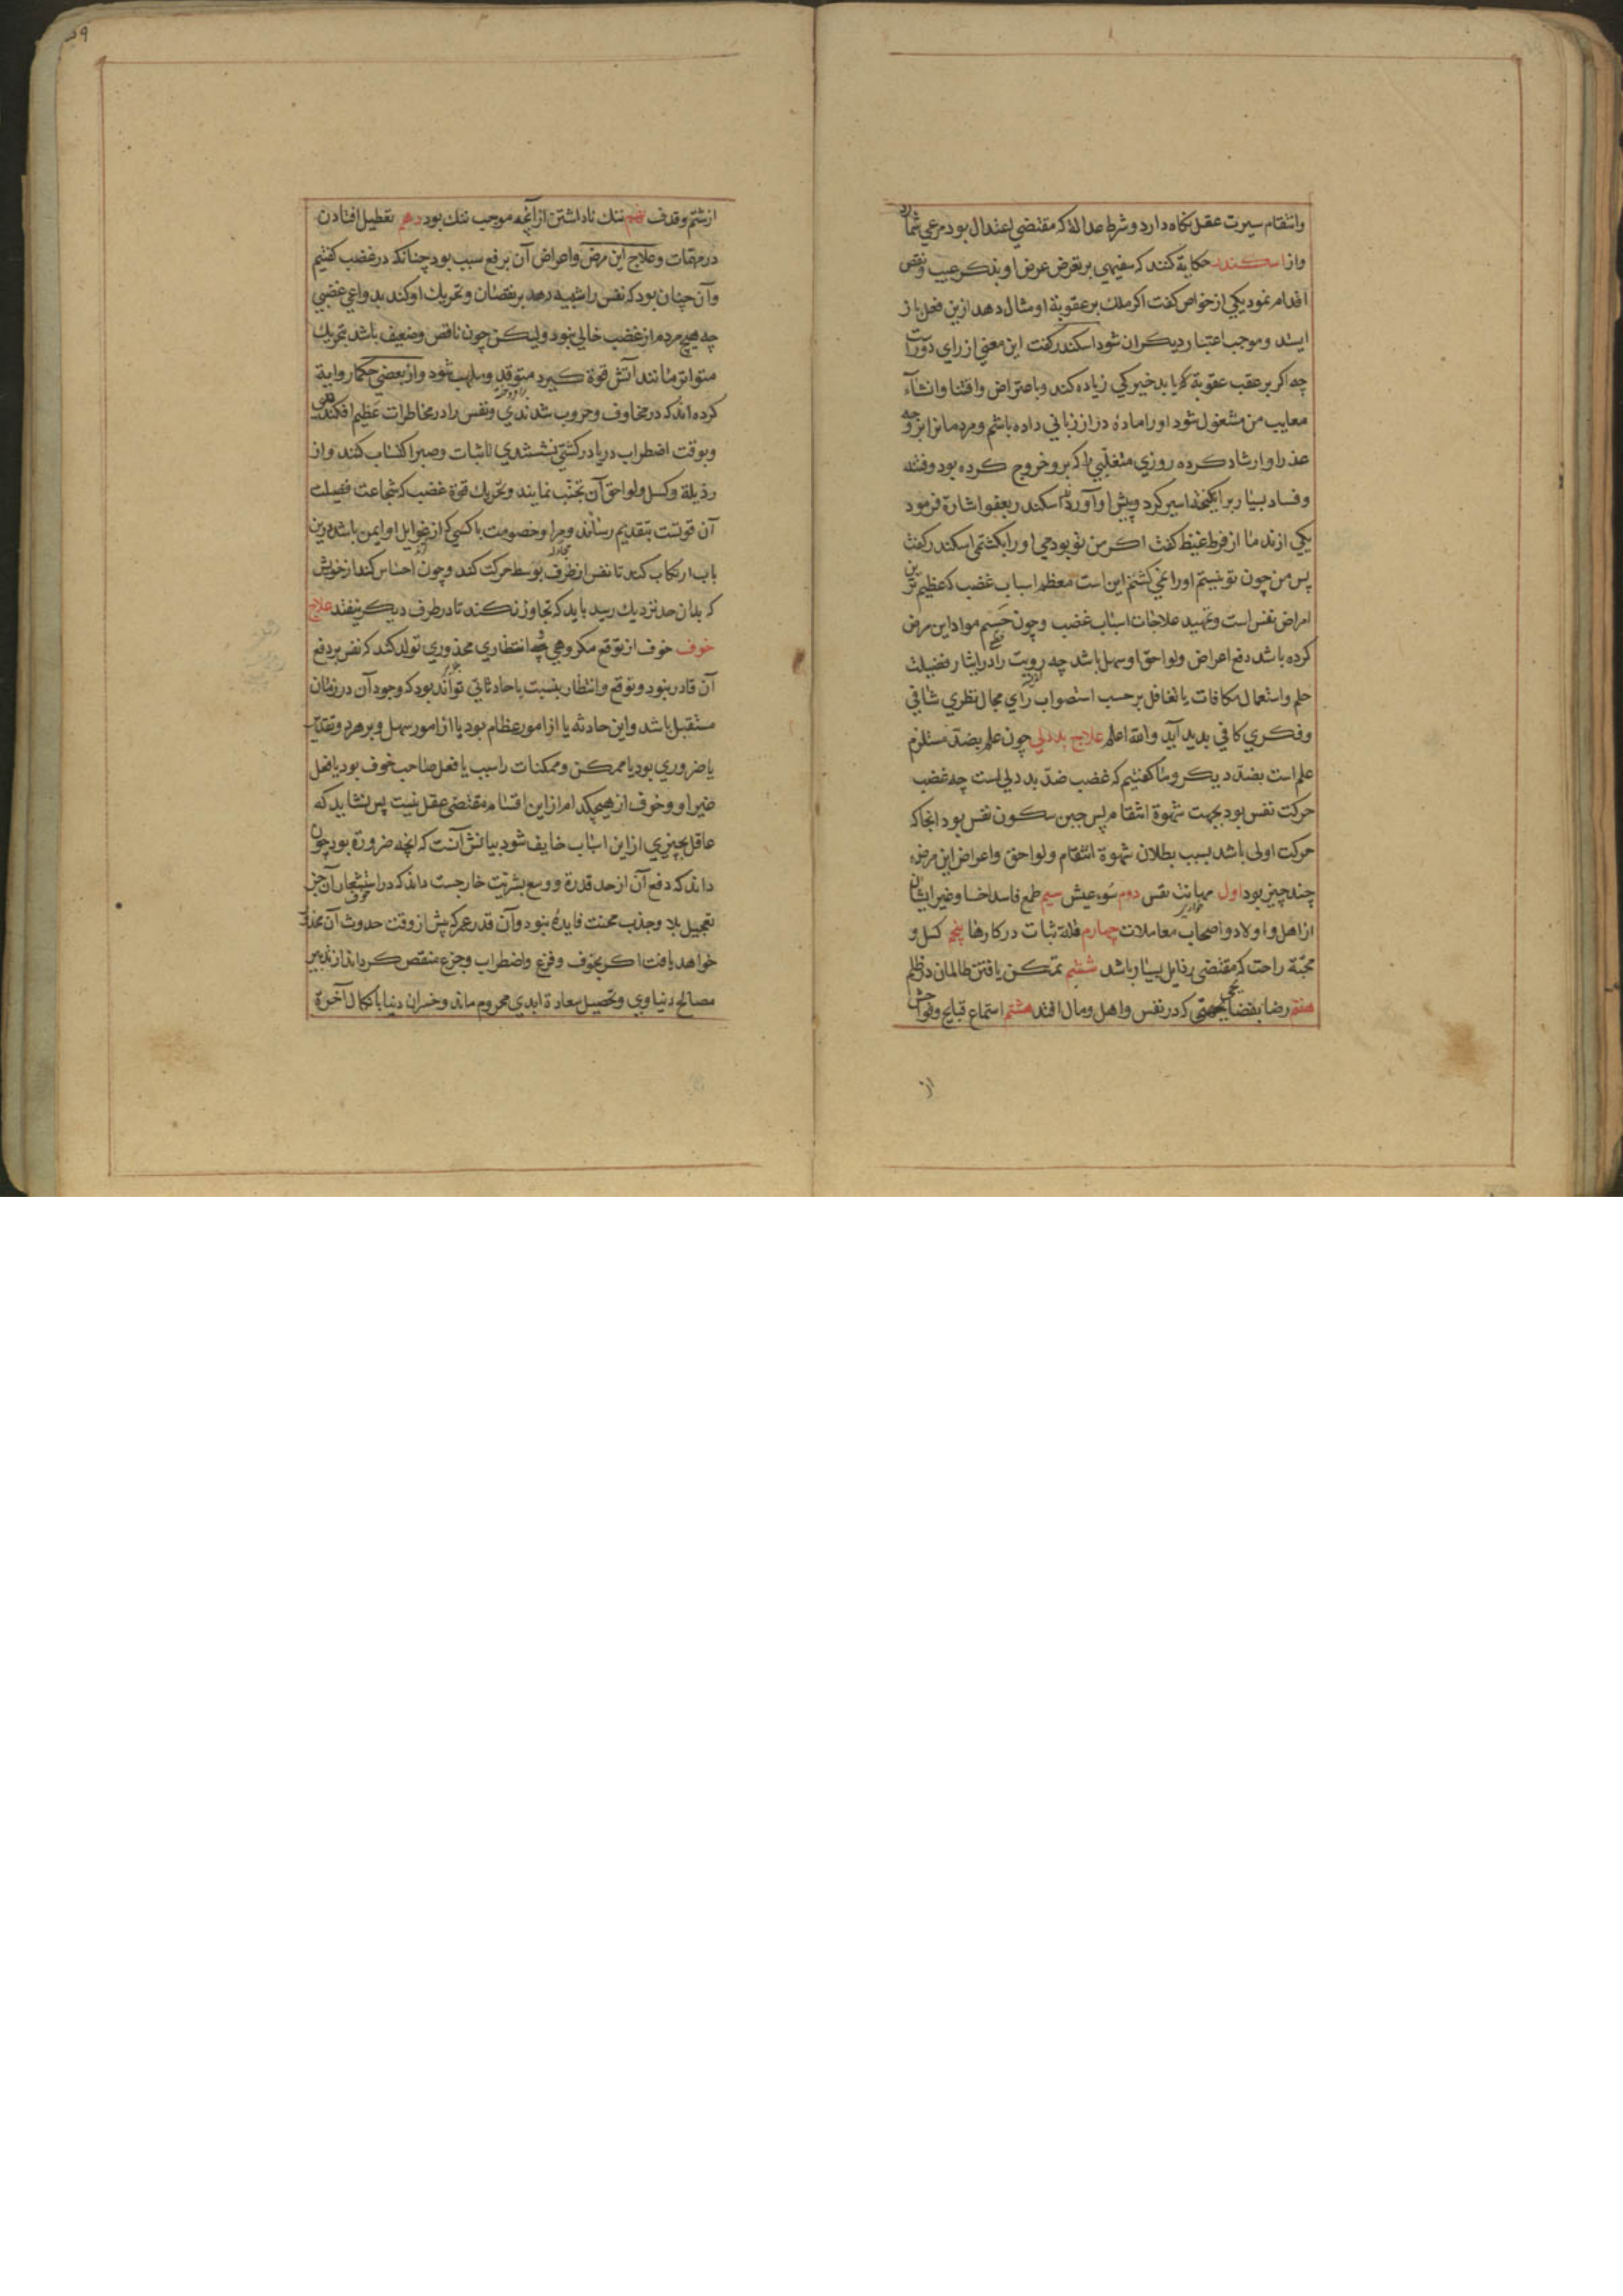 وانتقام سیرت عقل نگاه دارد و شرط عدالة که مقتضی اعتدال بود مرعی شمارد
واز اسکندر حکایة کنند که سفیهی بر تعرض عرض او بذکر عیب و نقص
اقدام نمود یکی از خواص گفت اگر ملك بر عقوبة او مثال دهد ازین فعل باز
ایستد و موجب اعتبار دیگران شود اسکندر گفت این معنی از رای دورست
چه اگر بر عقب عقوبة که یابد خیرگی زیاده کند و باعتراض و انشاء
معایب من مشغول شود او را مادهٔ دراز زبانی داده باشم و مردمانرا بر وجه
عذر او ارشاد کرده روزی متغلبی را که برو خروج کرده بود و فتنه
و فساد بسیار برانگیخته اسیر کرد و پیش او آورد اسکندر بعفو اشارة فرمود
یکی از ندما از فرط غیظ گفت اگر من تو بودمی او را بکشتمی اسکندر گفت
پس من چون تو نیستم او را نمی کشم این است معظم اسباب غضب که عظیم ترین
امراض نفس است و تمهید علاجات اسباب غضب و چون حسم مواد این مرض
کرده باشد دفع اعراض و لواحق او سهل باشد چه رویت را در ایثار فضیلت
حلم و استعمال مکافات یا تغافل بر حسب استصواب رای مجال نظری شافی
و فکری کافی بدید آید والله اعلم علاج بد دلی چون علم بضد مستلزم
علم است بضد دیگر و ما گفتیم که غضب ضد بد دلی است چه غضب
حرکت نفس بود بجهت شهوة انتقام پس جبن سکون نفس بود انجا که
حرکت اولی باشد بسبب بطلان شهوة انتقام و لواحق و اعراض این مرض
چند چیز بود اول مهانت نفس دوم سوء عیش سیم طمع فاسد اخسا و غیر ایشان
از اهل و اولاد و اصحاب معاملات چهارم قلة ثبات در کارها پنجم کسل و
محبة راحت که مقتضی رذایل بسیار باشد ششم تمکن یافتن ظالمان در ظلم
هفتم رضا بفضایحی که در نفس و اهل و مال افتد هشتم استماع قبایح و فواحش
از
از شتم و قذف نهم ننك ناداشتن از آنچه موجب ننك بود دهم تعطیل افتادن
در مهمات و علاج این مرض و اعراض آن برفع سبب بود چنانکه در غضب گفتیم
و آن چنان بود که نفس را تنبیه دهد بر نقصان و تحریك او کند بدواعی غضبی
چه هیچ مردم از غضب خالی نبود ولیکن چون ناقص و ضعیف باشد بتحریك
متواتر مانند آتش قوة گیرد متوقد و ملتهب شود و از بعضی حکما روایة
کرده اند که در مخاوف و حروب شدندی و نفس را در مخاطرات عظیم افکندی
و بوقت اضطراب دریا در کشتی نشستندی تا ثبات و صبر اکتساب کنند و از
رذیلة و کسل و لواحق آن تجنب نمایند و تحریك قوة غضب که شجاعت فضیلت
آن قوتست بتقدیم رسانند و مرا و خصومت با کسی که از غوایل او ایمن باشد درین
باب ارتکاب کند تا نفس از طرف بوسط حرکت کند و چون احساس کند از خویش
که بدان حد نزدیك رسید باید که تجاوز نکند تا در طرف دیگر نیفتد علاج
خوف خوف از توقع مکروهی یا انتظاری محذوری تولد کند که نفس بر دفع
آن قادر نبود و توقع و انتظار بنسبت با حادثاتی تواند بود که وجود آن در زمان
مستقبل باشد و این حادثه یا از امور عظام بود یا از امور سهل و بر هر دو تقدیر
یا ضروری بود یا ممکن و ممکنات را سبب یا فعل صاحب خوف بود یا فعل
غیر او و خوف از هیچکدام از این اقسام مقتضی عقل نیست پس نشاید که
عاقل بچیزی از این اسباب خایف شود بیانش آنست که آنچه ضرورة بود چون
داند که دفع آن از حد قدرة و وسع بشریت خارجست داند که در استشعار آن جز
تعجیل بلا و جذب محنت فایده نبود و آن قدر عمر که پیش از وقت حدوث آن محذور
خواهد یافت اگر بخوف و فزع و اضطراب و جزع منقص گرداند از تدبیر
مصالح دنیاوی و تحصیل سعادة ابدی محروم ماند و خسران دنیا با نکال آخرة